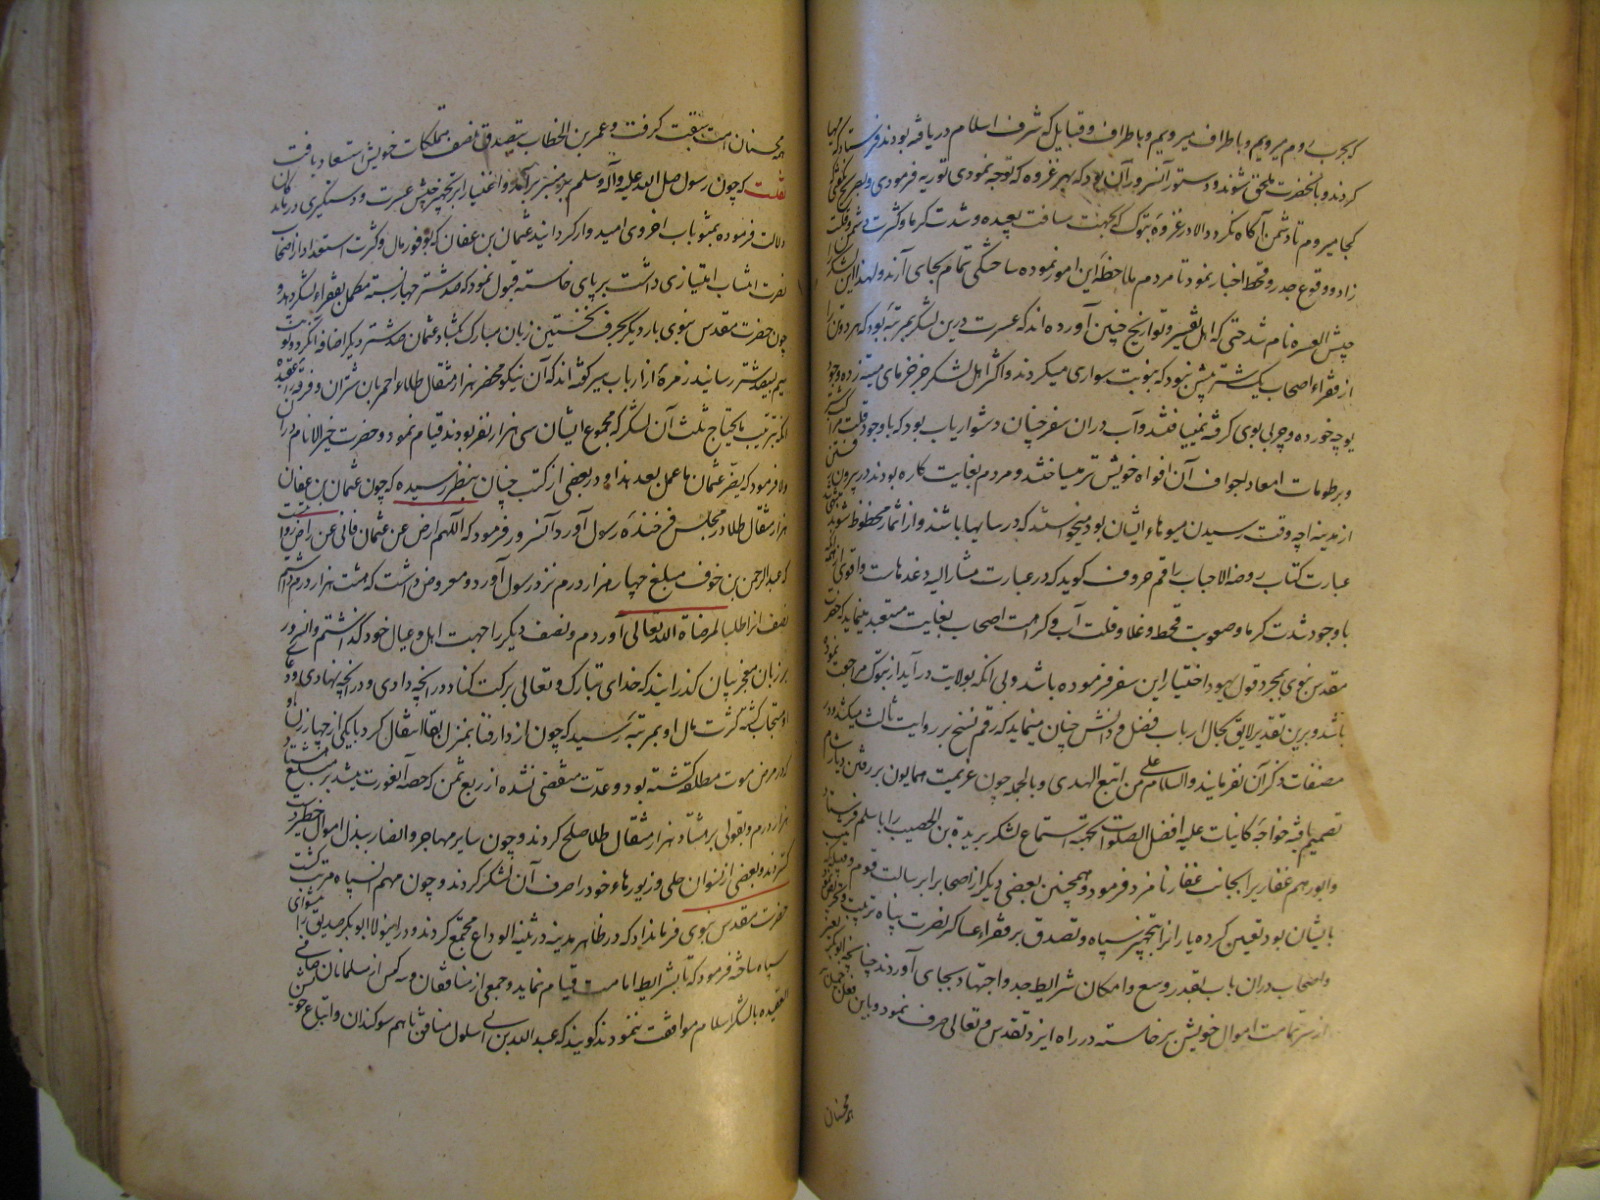 که بحرب روم میرویم و باطراف میرویم و باطراف و قبایل که شرف اسلام دریافته بودند فرستاد که مهیا
کردند و بآنحضرت ملحق شوند و دستور آنسرور آن بود که بهر غزوه که توجه نمودی توریه فرمودی و بصریح نگفتی
کجا میروم تا دشمن آگاه نکردد الا در غزوه تبوک که بجهت مسافت بعیده و شدت کرما و کثرت دشمن و قلت
زاد و وقوع جدر و قحط اخبار نمود تا مردم ملاحظه این امور نموده ساختگی تمام بجای آرند و لهذا این لشکر
جیش العسره نام شد حتی که اهل تفسیر و تواریخ چنین آورده اند که عسرت درین لشکر بمرتبه بود که هر دو تن را
از فقراء اصحاب یک شتر بیش نبود که بنوبت سواری میکردند و اکثر اهل لشکر جز خرمای زده و جو
بوی کرفته نمییافتند و آب دران سفر چنان دشوار یاب بود که با وجود قلت
و برطوبات امعا و اجواف آن افواه خویش تر میساختند و مردم بغایت کاره بودند در بیرون رفتن
از مدینه چه وقت رسیدن میوهاء ایشان بود میخواستند که در سایها باشند و از اثمار محظوظ شوند
عبارت کتاب روضه الاحباب راقم حروف کوید که در عبارت مشار الیه دغدغهاست و اقوی
با وجود شدت کرما و صعوبت قحط و غلا و قلت آب و کراهت اصحاب بغایت مستبعد مینماید که حضرت
مقدس نبوی بمجرد قول یهود اختیار این سفر فرموده باشد ولی انکه بولایت درآید از تبوک مراجعت نموده
باشد و برین تقدیر لایق بحال ارباب فضل و دانش چنان مینماید که رقم نسخ بر روایت ثالث میکشند و در
مصنفات ذکر آن نفرمایند والسلام علی من اتبع الهدی و بالجمله چون عزیمت همایون بر رفتن دیار شام
تصمیم یافت خواجه کاینات علیه افضل الصلوات بجهة استماع لشکر بریدة بن الحصیب را باسلم فرستاد
و ابو رهم غفار برا بجانب غفار نامزد فرمود و همچنین بعضی دیکر از اصحاب برا برسالت قوم و قبیله که
بایشان بود تعیین کرده یارانرا بتجهیز سپاه و تصدق بر فقراء عساکر نصرت پناه ترغیب و تحریض
و اصحاب دران باب بقدر وسع و امکان شرایط جد و اجتهاد بجای آوردند چنانچه ابو بکر
تمامت اموال خویش برخاسته در راه ایزد تقدس و تعالی صرف نمود و باین فعل جمیل
بر همچنان
بر همچنان امت سبقت کرفت و عمر بن الخطاب بتصدق نصف متملکات خویش استسعاد یافت
نقلست که چون رسول صلی الله علیه وآله وسلم بر منبر برآمده و اغنیا را بر تجهیز جیش عسرت و دستگیری درماندکان
دلالت فرموده بمثوبات اخروی امیدوار کردانید عثمان بن عفان که بوفور مال و کثرت استعداد از اصحاب
نصرت انتساب امتیازی داشت بر پای خاسته قبول نمود که صد شتر جهاز بسته مکمل بفقراء لشکر دهد و
چون حضرت مقدس نبوی بار دیکر بحرف نخستین زبان مبارک بکشاد عثمان صد شتر دیکر اضافه کرد و نوبت
سیم بسیصد شتر رسانید زمرهٔ از ارباب سیر کفته اند که آن نیکو محضر هزار مثقال طلاء احمر بآن شتران و فرقه بر عقیده
انکه بترتیب مایحتاج ثلث آن لشکر که مجموع ایشان سی هزار نفر بودند قیام نمود و حضرت خیر الانام دران
ولا فرمود که لا یضر عثمان ما عمل بعد هذا و در بعضی از کتب چنان بنظر رسیده که چون عثمان بن عفان
هزار مثقال طلا در مجلس فرخنده رسول آورد آنسرور فرمود که اللهم ارض عن عثمان فانی عن راض
که عبدالرحمن بن عوف مبلغ چهار هزار درم نزد رسول آورد و معروض داشت که هشت هزار درم داشتم
نصف انرا طلبا لمرضاة الله تعالی آوردم و نصف دیکر را جهت اهل و عیال خود کذاشتم و آنسرور
بر زبان معجز بیان کذرانید که خدای تبارک و تعالی برکت کناد در انچه دادی و در انچه نهادی و دعاء
او مستجاب کشته کثرت مال او بمرتبه رسید که چون از دار فنا بمنزل بقا انتقال کرد بایکی از چهار زن او
که در مرض موت مطلقه کشته بود و عدت منقضی نشده از ربع ثمن که حصه آنعورت میشد بر مبلغ هشتاد
هزار درم و بقولی بر هشتاد هزار مثقال طلا صلح کردند و چون سایر مهاجر و انصار ببذل اموال
و بعضی از نسوان حلی و زیورهاء خود را صرف آن لشکر کردند و چون مهم آن سپاه مرتب کشت
حضرت مقدس نبوی فرمان داد که در ظاهر مدینه در ثنیه الوداع مجتمع کردند و در اینولا ابو بکر صدیق را پیشوای
سپاه ساخته فرمود که تا بشرایط امامت قیام نماید و جمعی از منافقان و سه کس از مسلمانان صافی
العقیده با لشکر اسلام موافقت ننمودند کویند که عبدالله بن ابی سلول منافق با هم سوکندان و اتباع